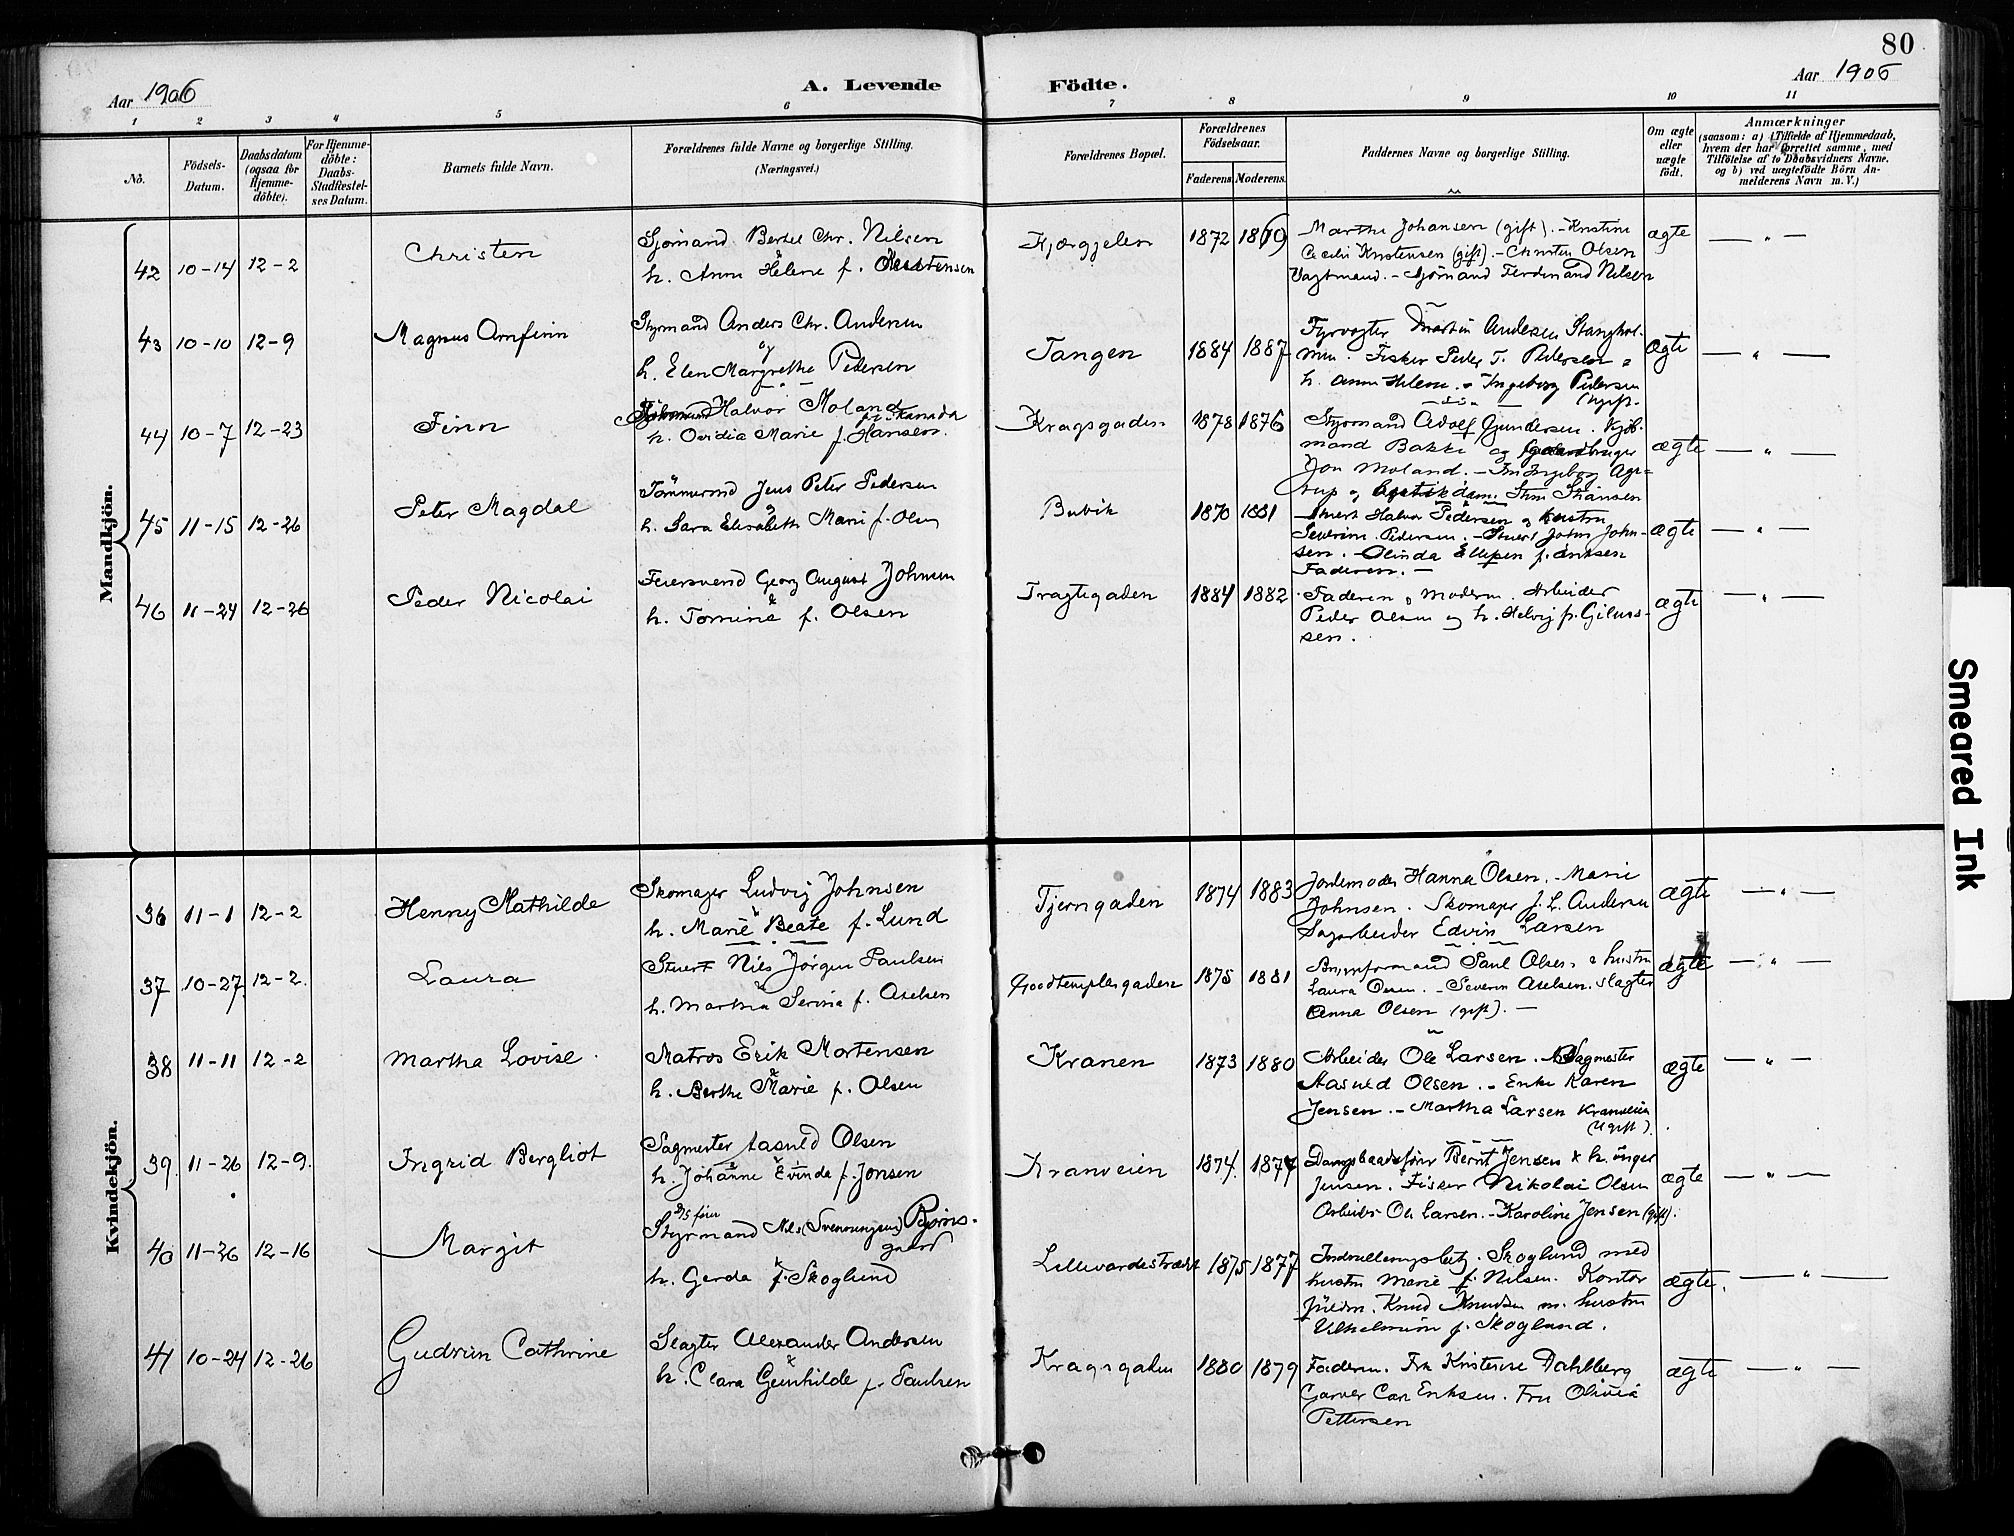 80
Aar 1906
A. Levende Födte.
Aar 1906
1 2 3 4 5 6 7 8 9 10 11
No.
Födsels-Datum.
Daabsdatum (ogsaa for Hjemme-döbte).
For Hjemme-döbte: Daabs-Stadfæstel-ses Datum.
Barnets fulde Navn.
Forældrenes fulde Navne og borgerlige Stilling.
(Næringsvei.)
Forældrenes Bopæl.
Forældrenes Födselsaar.
Faderens. Moderens.
Faddernes Navne og borgerlige Stilling.
Om ægte eller uægte födt.
Anmærkninger
(saasom: a) i Tilfælde af Hjemmedaab,
hvem der har forrettet samme, med
Tilföielse af to Daabsvidners Navne,
og b) ved uægtefödte Börn An-
melderens Navn m. V.)
Mandkjön.
42 10-14 12-2 Christen
Sjømand Bertel Chr. Nilsen
&
h. Anne Helene f. Kristensen
Kjærgjelen 1872
Marthe Johansen (gift). - Kristine
Cecilie Kristensen (gift). - Christen Olsen
Vagtmand. - Sjømand Ferdinand Nilsen
ægte — " —
43 10-10 12-9 Magnus Arnfinn
Styrmand Anders Chr. Andersen
og
h. Elen Margrethe Pedersen
Tangen 1884 1887
Fyrvogter Martin Andersen Stanghol-
men. Fisker Peder T. Pedersen &
h. Anne Helene. & Ingeborg Pedersen
(ugift.
ægte — " —
44 10-7 12-23 Finn
Halvor Moland
h. Ovidia Marie f. Hansen
Kragsgaden 1878 1876
Styrmand Adolf Gundersen. Kjøb-
mand Bakke og Gaardbruger
Jon Moland. - Frk Ingeborg Ag-
ægte — " —
45 11-15 12-26 Peter Magdal
Tømmermd Jens Peter Pedersen
&
h. Sara Elisabeth Marie f. Olsen
Buvik 1870 1881
Stuert Halvor Pedersen og hustru
Severine Pedersen. - Stuert John John-
sen. - Olinda Ellefsen f. Antsen
Faderen. —
ægte — " —
46 11-24 12-26 Peder Nicolai
Feiersvend Georg August Johnsen
&
h. Tomine f. Olsen
Tragtegaden 1884 1882
Faderen & Moderen. Arbeider
Peder Olsen og h. Helvig f. Gilius-
sen.
ægte — " —
Kvindekjön.
36 11-1 12-2 Henny Mathilde
Skomager Ludvig Johnsen
&
h. Marie Beate f. Lund
Tjerngaden 1874 1883
Jordemoder Hanna Olsen. - Marie
Johnsen. Skomager J. L. Andersen
Sagarbeider Edvin Larsen
ægte — " —
37 10-27 12-2. Laura
Stuert Nils Jørgen Paulsen
&
h. Martha Serine f. Axelsen
Goodtemplergaden 1875 1881
Paul Olsen & hustru
Laura Olsen. - Severin Axelsen. slagter
Anna Olsen (gift). —
ægte — " —
38 11-11 12-2 Martha Lovise.
Matros Erik Mortensen
&
h. Berthe Marie f. Olsen
Kranen 1873 1880
Arbeider Ole Larsen. Sagmester
Aasuld Olsen. - Enke Karen
Jensen. - Martha Larsen Kranveien
(Ugift).
ægte — " —
39. 11-26 12-9. Ingrid Bergliot
Sagmester Aasuld Olsen
&
h. Johanne Evinda f. Jonsen
Kranveien 1874. 1877
Dampbaadsfører Bernt Jensen & h. Inger
Jensen. Fisker Nikolai Olsen
Arbeider Ole Larsen. - Karoline Jensen (gift).
ægte — " —
40 11-26 12-16 Margit
D/S fører
Styrmand Nils (Svenningsen) Bjørns-
gaard
&
h. Gerda f. Skoglund
Lillevardestrædet 1875 1877
Skoglund med
hustru Marie f. Nilsen. Kontor
fuldm. Knud Knudsen m. hustru
Vilhelmine f. Skoglund.
ægte. — " —
41 10-24 12-26 Gudrun Cathrine
Slagter Alexander Andersen
&
h. Clara Gunhilde f. Paulsen
Kragsgaden 1880 1879
Faderen. Fru Kristense Dahlberg
Garver Carl Eriksen. Fru Olivia
Pettersen
ægte — " —
Smeared Ink